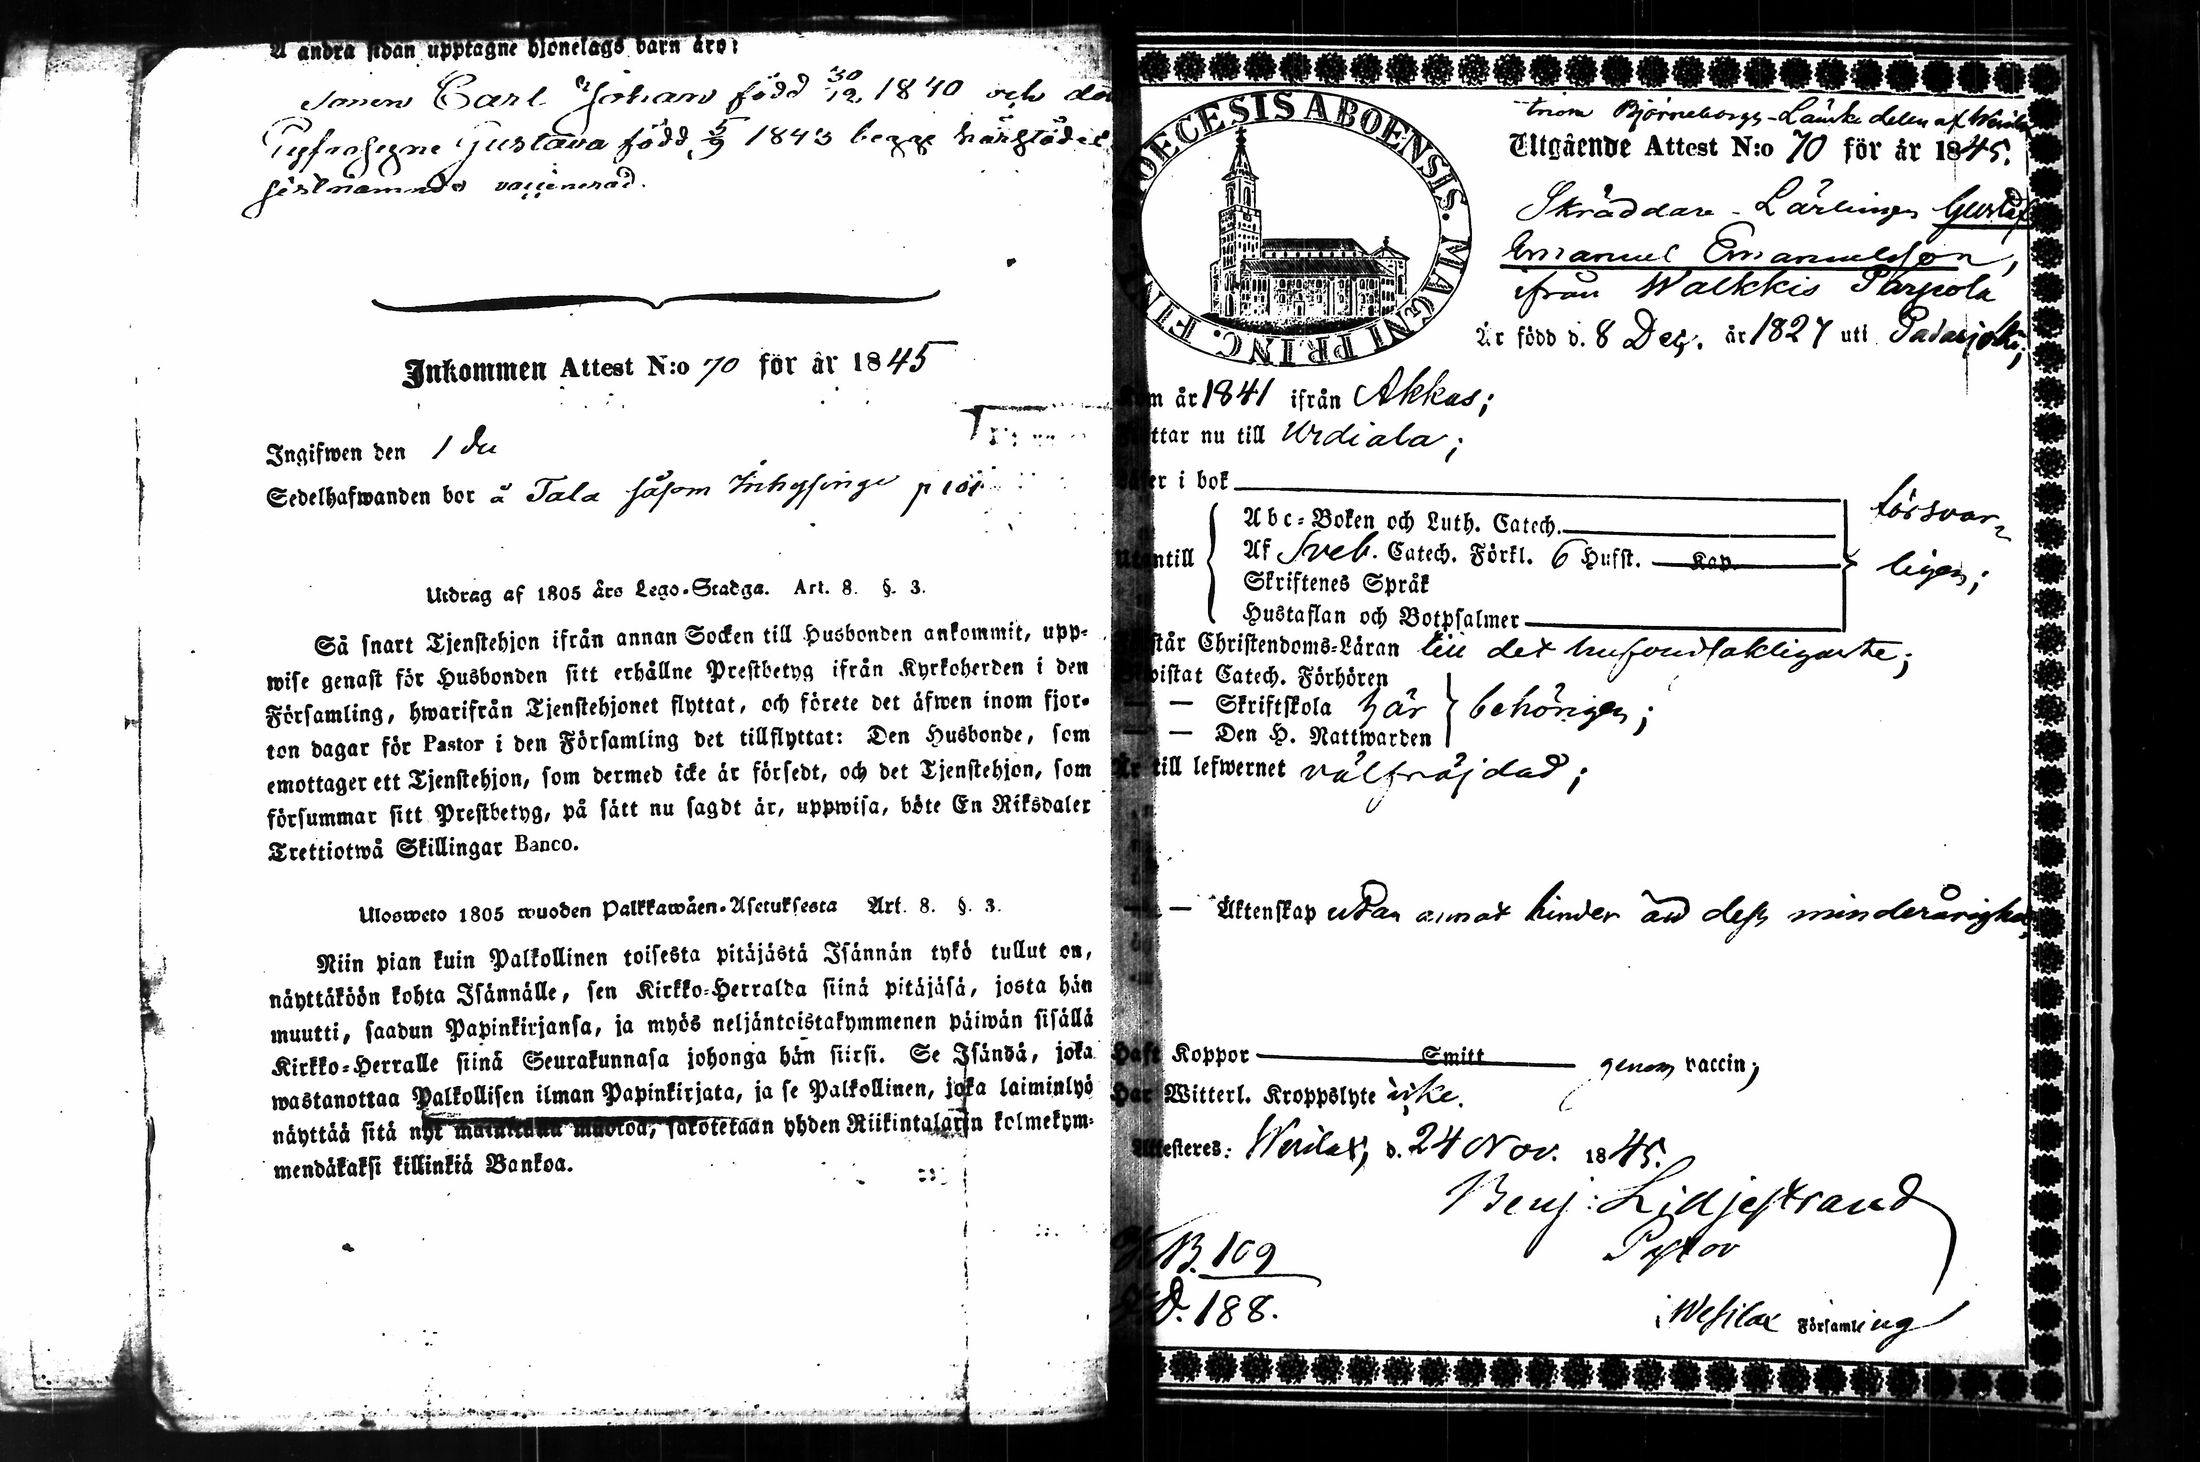 Å andra sidan upptagne hjonelags barn äro:
Sonen Carl Johan född 30/12 1840 och
Gustava född 5/9 1843 begge härstädes
sistnämnde vaccinerad.
Inkommen Attest N:o 70 för år 1845
Ingifwen den 1 du
Sedelhafwanden bor å Tala såsom Inhysinge
Utdrag af 1805 års Lego-Stadga. Art. 8. §. 3.
Så snart Tjenstehjon ifrån annan Socken till Husbonden ankommit, upp-
wise genast för Husbonden sitt erhållne Prestbetyg ifrån Kyrkoherden i den
Församling, hwarifrån Tjenstehjonet flyttat, och förete det äfwen inom fjor-
ton dagar för Pastor i den Församling det tillflyttat: Den Husbonde, som
emottager ett Tjenstehjon, som dermed icke är försedt, och det Tjenstehjon, som
försummar sitt Prestbetyg, på sätt nu sagdt är, uppwisa, böte En Riksdaler
Trettiotwå Skillingar Banco.
Ulosweto 1805 wuoden Palkkawäen-Asetuksesta Art. 8. §. 3.
Niin pian kuin Palkollinen toisesta pitäjästä Isännän tykö tullut on,
näyttäköön kohta Isännälle, sen Kirkko-Herralda siinä pitäjäsä, josta hän
muutti, saadun Papinkirjansa, ja myös neljäntoistakymmenen päiwän sisällä
Kirkko-Herralle siinä Seurakunnasa johonga hän siirsi. Se Isändä, joka
wastanottaa Palkollisen ilman Papinkirjata, ja se Palkollinen, joka laiminlyö
näyttää sitä nyt mainitulla muotoa, sakotetaan yhden Riikintalarin kolmekym-
mendäkaksi killinkiä Bankoa.
DIOECESIS ABOENSIS. MAGNI PRINC. FIN
Björneborgs-Läns delen af
Utgående Attest N:o 70 för år 1845.
Skräddare-Lärlingen Gustaf
Emanuel Emanuelsson,
ifrån Walkkis Parpola
Är född d. 8 Dec. år 1827 uti Padasjoki;
år 1841 ifrån Akkas;
nu till Urdiala;
i bok
försvar-
Abc-Boken och Luth. Catech.
Utantill Af Sveb. Catech. Förkl. 6 Hufst. Kap. ligen;
Skriftenes Språk
Hustaflan och Botpsalmer
Christendoms-Läran till det hufvudsakligaste;
Catech. Förhören
— — Skriftskola här behörigen;
— — Den H. Nattwarden
Är till lefwernet välfräjdad;
— Äktenskap utan annat hinder än dess minderårighet
Haft Koppor Smitt genom vaccin;
Har Witterl. Kroppslyte icke.
Attesteres: Wesilax, d. 24 Nov. 1845.
Benj: Lidjestrand
Pastor
K.B. 109
D. 188.
i Wesilax Församling